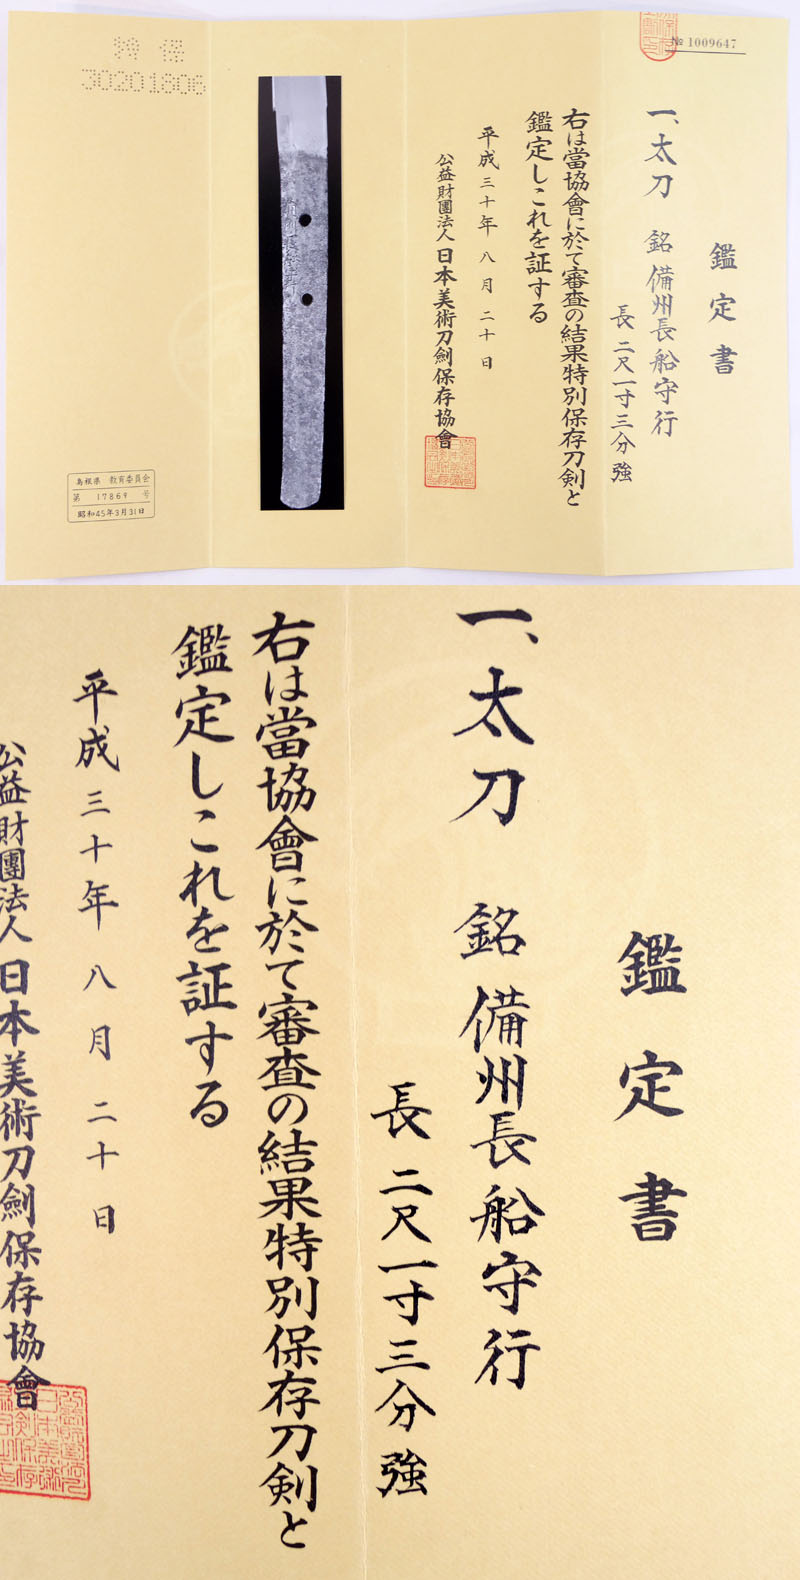 № 1009647
鑑定書
一、太刀 銘 備州長船守行
長 二尺一寸三分強
右は當協會に於て審査の結果特別保存刀剣と
鑑定しこれを証する
平成三十年八月二十日
公益財團法人日本美術刀劍保存協會
特保
30201806
島根県 教育委員会
第 17869 号
昭和45年3月31日
鑑定書
一、太刀 銘 備州長船守行
長 二尺一寸三分強
右は當協會に於て審査の結果特別保存刀剣と
鑑定しこれを証する
平成三十年八月二十日
公益財團法人日本美術刀劍保存協會